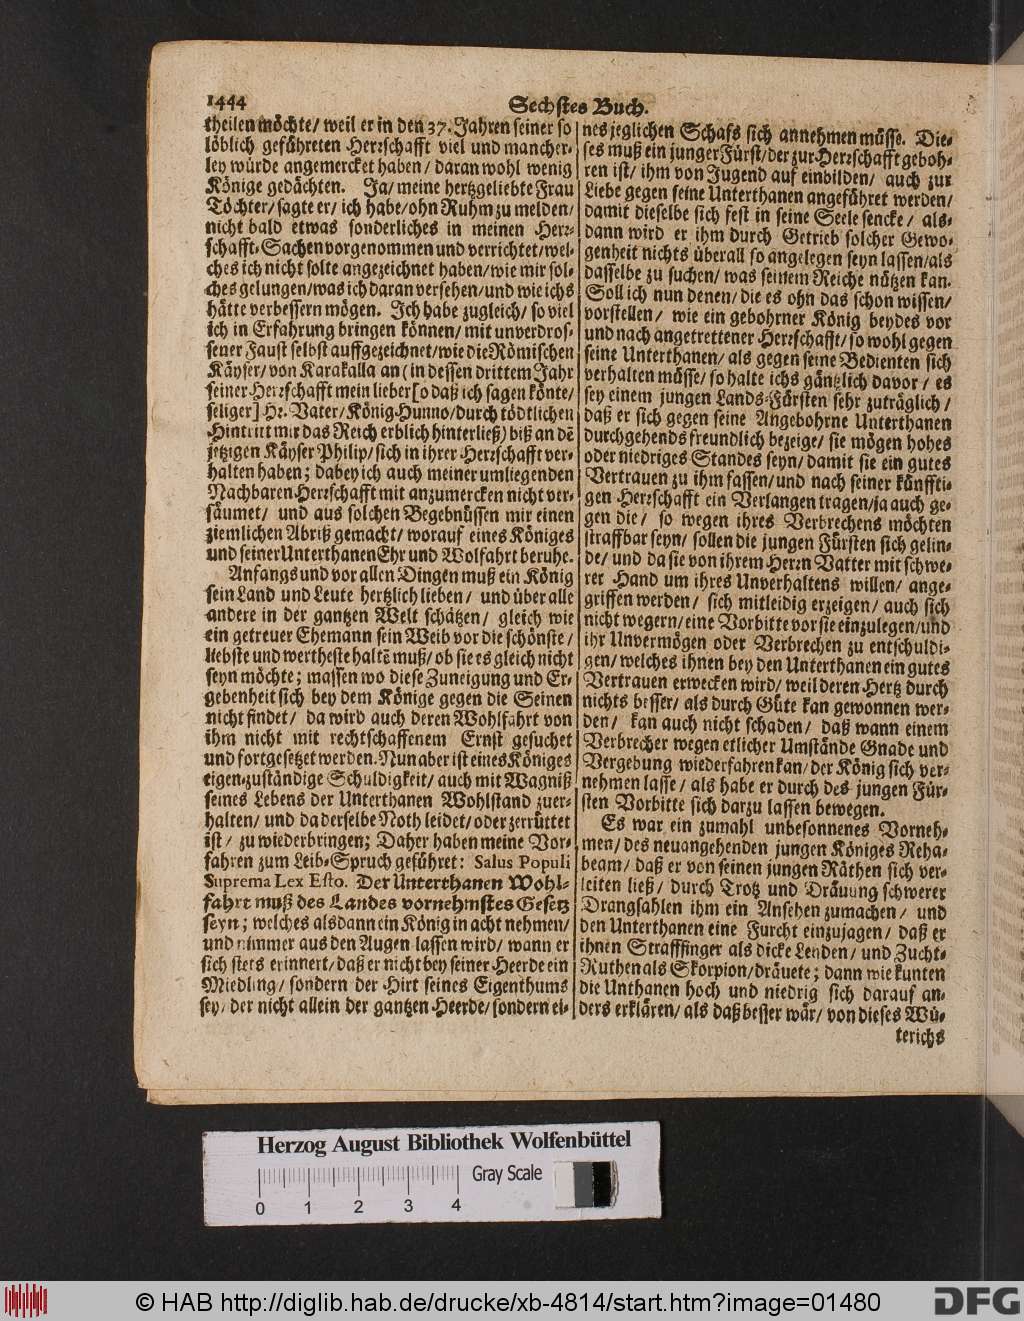 1444
Sechstes Buch.
theilen möchte/ weil er in den 37. Jahren seiner so
löblich geführeten Herꝛschafft viel und mancher-
ley würde angemercket haben/ daran wohl wenig
Könige gedächten. Ja/ meine hertzgeliebte Frau
Töchter/ sagte er/ ich habe/ ohn Ruhm zu melden/
nicht bald etwas sonderliches in meinen Herꝛ-
schafft-Sachen vorgenommen und verrichtet/ wel-
ches ich nicht solte angezeichnet haben/ wie mir sol-
ches gelungen/ was ich daran versehen/ und wie ichs
hätte verbessern mögen. Ich habe zugleich/ so viel
ich in Erfahrung bringen können/ mit unverdros-
sener Faust selbst auffgezeichnet/ wie die Römischen
Käyser/ von Karakalla an (in dessen drittem Jahr
seiner Herꝛschafft mein lieber [o daß ich sagen könte/
seliger] Hr. Vater/ König Hunno/ durch tödtlichen
Hintritt mir das Reich erblich hinterließ) biß an dē
jetzigen Käyser Philip/ sich in ihrer Herꝛschafft ver-
halten haben; dabey ich auch meiner umliegenden
Nachbaren Herꝛschafft mit anzumercken nicht ver-
säumet/ und aus solchen Begebnüssen mir einen
ziemlichen Abriß gemacht/ worauf eines Königes
und seiner Unterthanen Ehr und Wolfahrt beruhe.
Anfangs und vor allen Dingen muß ein König
sein Land und Leute hertzlich lieben/ und über alle
andere in der gantzen Welt schätzen/ gleich wie
ein getreuer Ehemann sein Weib vor die schönste/
liebste und wertheste haltē muß/ ob sie es gleich nicht
seyn möchte; massen wo diese Zuneigung und Er-
gebenheit sich bey dem Könige gegen die Seinen
nicht findet/ da wird auch deren Wohlfahrt von
ihm nicht mit rechtschaffenem Ernst gesuchet
und fortgesetzet werden. Nun aber ist eines Königes
eigen-zuständige Schuldigkeit/ auch mit Wagniß
seines Lebens der Unterthanen Wohlstand zuer-
halten/ und da derselbe Noth leidet/ oder zerrüttet
ist/ zu wiederbringen; Daher haben meine Vor-
fahren zum Leib-Spruch geführet: Salus Populi
Suprema Lex Esto. Der Unterthanen Wohl-
fahrt muß des Landes vornehmstes Gesetz
seyn; welches alsdann ein König in acht nehmen/
und nimmer aus den Augen lassen wird/ wann er
sich stets erinnert/ daß er nicht bey seiner Heerde ein
Miedling/ sondern der Hirt seines Eigenthums
sey/ der nicht allein der gantzen Heerde/ sondern ei-
nes jeglichen Schafs sich annehmen müsse. Die-
ses muß ein junger Fürst/ der zur Herꝛschafft geboh-
ren ist/ ihm von Jugend auf einbilden/ auch zur
Liebe gegen seine Unterthanen angeführet werden/
damit dieselbe sich fest in seine Seele sencke/ als-
dann wird er ihm durch Getrieb solcher Gewo-
genheit nichts überall so angelegen seyn lassen/ als
dasselbe zu suchen/ was seinem Reiche nützen kan.
Soll ich nun denen/ die es ohn das schon wissen/
vorstellen/ wie ein gebohrner König beydes vor
und nach angetrettener Herꝛschafft/ so wohl gegen
seine Unterthanen/ als gegen seine Bedienten sich
verhalten müsse/ so halte ichs gäntzlich davor/ es
sey einem jungen Lands-Fürsten sehr zuträglich/
daß er sich gegen seine Angebohrne Unterthanen
durchgehends freundlich bezeige/ sie mögen hohes
oder niedriges Standes seyn/ damit sie ein gutes
Vertrauen zu ihm fassen/ und nach seiner künffti-
gen Herꝛschafft ein Verlangen tragen/ ja auch ge-
gen die/ so wegen ihres Verbrechens möchten
straffbar seyn/ sollen die jungen Fürsten sich gelin-
de/ und da sie von ihrem Herꝛn Vatter mit schwe-
rer Hand um ihres Unverhaltens willen/ ange-
griffen werden/ sich mitleidig erzeigen/ auch sich
nicht wegern/ eine Vorbitte vor sie einzulegen/ und
ihr Unvermögen oder Verbrechen zu entschuldi-
gen/ welches ihnen bey den Unterthanen ein gutes
Vertrauen erwecken wird/ weil deren Hertz durch
nichts besser/ als durch Güte kan gewonnen wer-
den/ kan auch nicht schaden/ daß wann einem
Verbrecher wegen etlicher Umstände Gnade und
Vergebung wiederfahren kan/ der König sich ver-
nehmen lasse/ als habe er durch des jungen Für-
sten Vorbitte sich darzu lassen bewegen.
Es war ein zumahl unbesonnenes Vorneh-
men/ des neuangehenden jungen Königes Reha-
beam/ daß er von seinen jungen Räthen sich ver-
leiten ließ/ durch Trotz und Dräuung schwerer
Drangsahlen ihm ein Ansehen zumachen/ und
den Unterthanen eine Furcht einzujagen/ daß er
ihnen Strafffinger als dicke Lenden/ und Zucht-
Ruthen als Skorpion/ dräuete; dann wie kunten
die Unthanen hoch und niedrig sich darauf an-
ders erklären/ als daß besser wär/ von dieses Wü-
terichs
Herzog August Bibliothek Wolfenbüttel
Gray Scale
0 1 2 3 4
© HAB http://diglib.hab.de/drucke/xb-4814/start.htm?image=01480
DFG